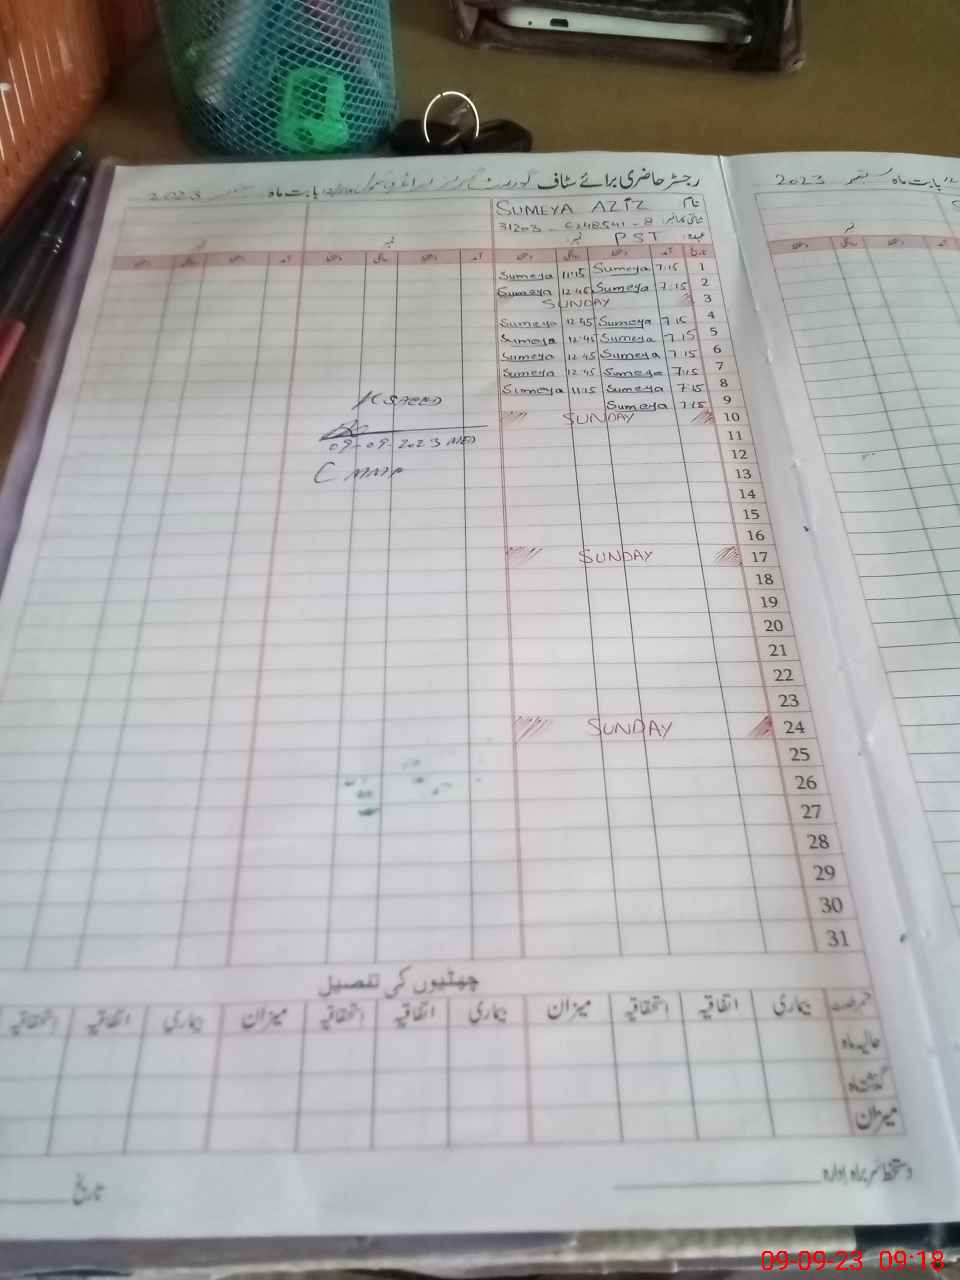 رجسٹر حاضری برائے سٹاف گورنمنٹ گرلز بابت ماہ ستمبر 2023
بابت ماہ ستمبر 2023
نام SUMEYA AZIZ
31203 - 6248541 - 8
عہدہ PST
نمبر
نمبر
نمبر
1 7:15 Sumeya 11:15 Sumeya
2 7:15 Sumeya 12:45 Sumeya
3 SUNDAY
4 7:15 Sumeya 12:45 Sumeya
5 7:15 Sumeya 12:45 Sumeya
6 7:15 Sumeya 12:45 Sumeya
7 7:15 Sumeya 12:45 Sumeya
8 7:15 Sumeya 11:15 Sumeya
9 7:15 Sumeya
10 SUNDAY
11
12
13
14
15
16
17 SUNDAY
18
19
20
21
22
23
24 SUNDAY
25
26
27
28
29
30
31
09-09-2023
چھٹیوں کی تفصیل
بیماری اتفاقیہ استحقاقیہ میزان بیماری اتفاقیہ استحقاقیہ میزان بیماری اتفاقیہ استحقاقیہ
حالیہ ماہ
گذشتہ ماہ
میزان
دستخط سربراہ ادارہ
تاریخ
09-09-23 09:18